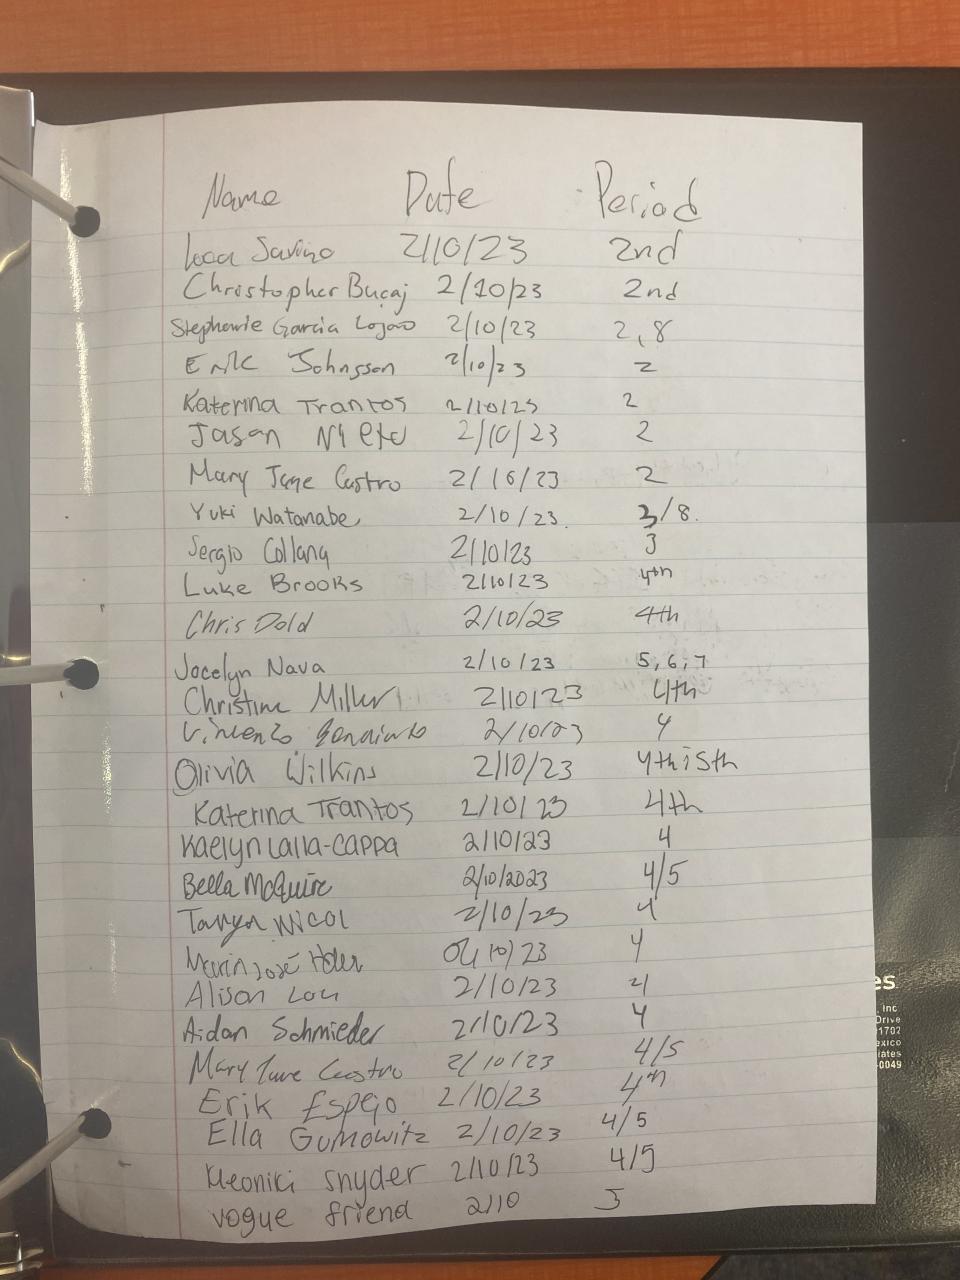 Name Date Period
Luca Savino 2/10/23 2nd
Christopher Bucaj 2/10/23 2nd
Stephanie Garcia Lojano 2/10/23 2,8
Erik Johnsson 2/10/23 2
Katerina Trantos 2/10/23 2
Jasan Nieto 2/10/23 2
Mary Jane Castro 2/10/23 2
Yuki Watanabe 2/10/23. 3/8.
Sergio Collana 2/10/23 3
Luke Brooks 2/10/23 4th
Chris Dold 2/10/23 4th
Jocelyn Nava 2/10/23 5,6,7
Christine Miller 2/10/23 4th
Vincenzo 2/10/23 4
Olivia Wilkins 2/10/23 4th;5th
Katerina Trantos 2/10/23 4th
Kaelyn Lalla-Cappa 2/10/23 4
Bella McGuire 2/10/2023 4/5
Tanya Nicol 2/10/23 4
José 10/23 4
Alison Lou 2/10/23 4
Aidan Schmieder 2/10/23 4
Mary Jane Castro 2/10/23 4/5
Erik Espejo 2/10/23 4th
Ella Gumowitz 2/10/23 4/5
Kleoniki Snyder 2/10/23 4/5
vogue friend 2/10 5
es
, inc
Drive
1702
exico
iates
-0049